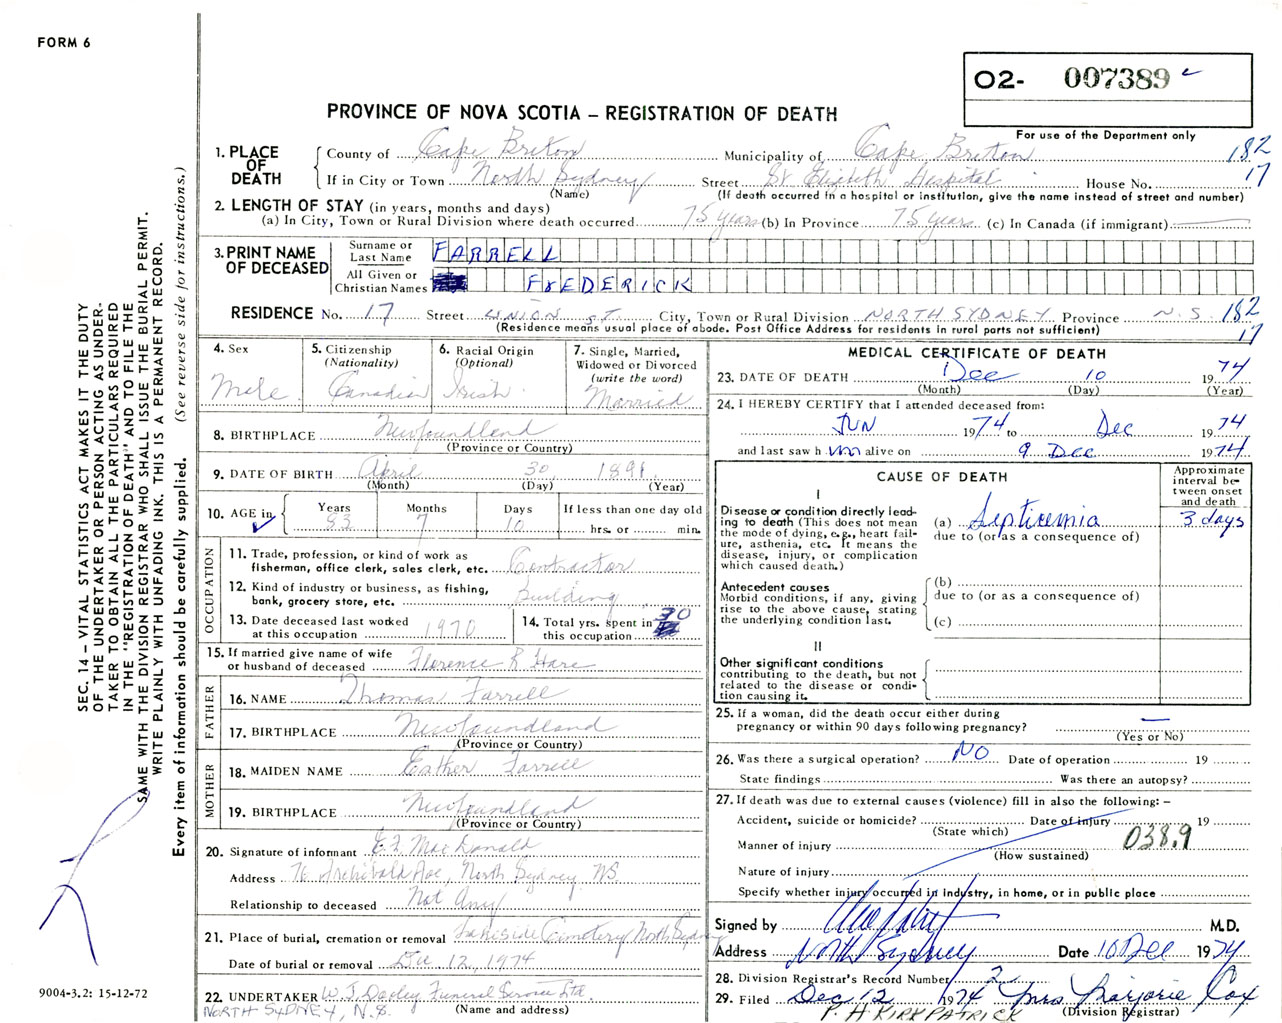 FORM 6
O2- 007389
For use of the Department only
PROVINCE OF NOVA SCOTIA – REGISTRATION OF DEATH
1. PLACE OF DEATH
County of Cape Breton Municipality of Cape Breton 182
If in City or Town North Sydney Street St Elizabeth Hospital House No. 17
(Name) (If death occurred in a hospital or institution, give the name instead of street and number)
2. LENGTH OF STAY (in years, months and days)
(a) In City, Town or Rural Division where death occurred 75 years (b) In Province 75 years (c) In Canada (if immigrant)
3. PRINT NAME OF DECEASED
Surname or Last Name FARRELL
All Given or Christian Names FREDERICK
RESIDENCE No. 17 Street UNION ST City, Town or Rural Division NORTH SYDNEY Province N.S. 182
(Residence means usual place of abode. Post Office Address for residents in rural parts not sufficient) 17
4. Sex
Male
5. Citizenship
(Nationality)
Canadian
6. Racial Origin
(Optional)
Irish
7. Single, Married,
Widowed or Divorced
(write the word)
Married
8. BIRTHPLACE Newfoundland
(Province or Country)
9. DATE OF BIRTH April 30 1891
(Month) (Day) (Year)
10. AGE in
Years Months Days If less than one day old
83 7 10 hrs. or min.
OCCUPATION
11. Trade, profession, or kind of work as
fisherman, office clerk, sales clerk, etc. Contractor
12. Kind of industry or business, as fishing,
bank, grocery store, etc. Building
13. Date deceased last worked
at this occupation 1970
14. Total yrs. spent in
this occupation 30
15. If married give name of wife
or husband of deceased Florence R Hare
FATHER
16. NAME Thomas Farrell
17. BIRTHPLACE Newfoundland
(Province or Country)
MOTHER
18. MAIDEN NAME Esther Farrell
19. BIRTHPLACE Newfoundland
(Province or Country)
20. Signature of informant MacDonald
Address 76 Archibald Ave, North Sydney NS
Relationship to deceased Not Any
21. Place of burial, cremation or removal Lakeside Cemetery North Sydney
Date of burial or removal Dec 12, 1974
22. UNDERTAKER W. J. Dooley Funeral Service Ltd.
NORTH SYDNEY, N.S. (Name and address)
MEDICAL CERTIFICATE OF DEATH
23. DATE OF DEATH Dec 10 1974
(Month) (Day) (Year)
24. I HEREBY CERTIFY that I attended deceased from:
JUN 1974 to Dec 1974
and last saw h im alive on 9 Dec 1974
CAUSE OF DEATH
Approximate
interval be-
tween onset
and death
I
Disease or condition directly lead-
ing to death (This does not mean
the mode of dying, e.g., heart fail-
ure, asthenia, etc. It means the
disease, injury, or complication
which caused death.)
(a) Septicemia 3 days
due to (or as a consequence of)
Antecedent causes
Morbid conditions, if any, giving
rise to the above cause, stating
the underlying condition last.
(b)
due to (or as a consequence of)
(c)
II
Other significant conditions
contributing to the death, but not
related to the disease or condi-
tion causing it.
25. If a woman, did the death occur either during
pregnancy or within 90 days following pregnancy? —
(Yes or No)
26. Was there a surgical operation? NO Date of operation 19
State findings Was there an autopsy?
27. If death was due to external causes (violence) fill in also the following: –
Accident, suicide or homicide? Date of injury 19
(State which)
Manner of injury 038.9
(How sustained)
Nature of injury
Specify whether injury occurred in Industry, in home, or in public place
Signed by M.D.
Address North Sydney Date 10 Dec 1974
28. Division Registrar's Record Number 2
29. Filed Dec 12 1974 Mrs Marjorie Cox
P. H KIRKPATRICK (Division Registrar)
SEC. 14 – VITAL STATISTICS ACT MAKES IT THE DUTY
OF THE UNDERTAKER OR PERSON ACTING AS UNDER-
TAKER TO OBTAIN ALL THE PARTICULARS REQUIRED
IN THE "REGISTRATION OF DEATH" AND TO FILE THE
SAME WITH THE DIVISION REGISTRAR WHO SHALL ISSUE THE BURIAL PERMIT.
WRITE PLAINLY WITH UNFADING INK. THIS IS A PERMANENT RECORD.
Every item of information should be carefully supplied. (See reverse side for instructions.)
9004-3.2: 15-12-72